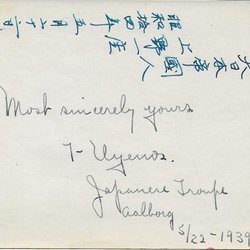 大日本帝
國人
上野一座
昭和拾四年
五月二十二日
Most sincerely yours
T. Uyeno.
Japanese Troupe
Aalborg
5/22-1939